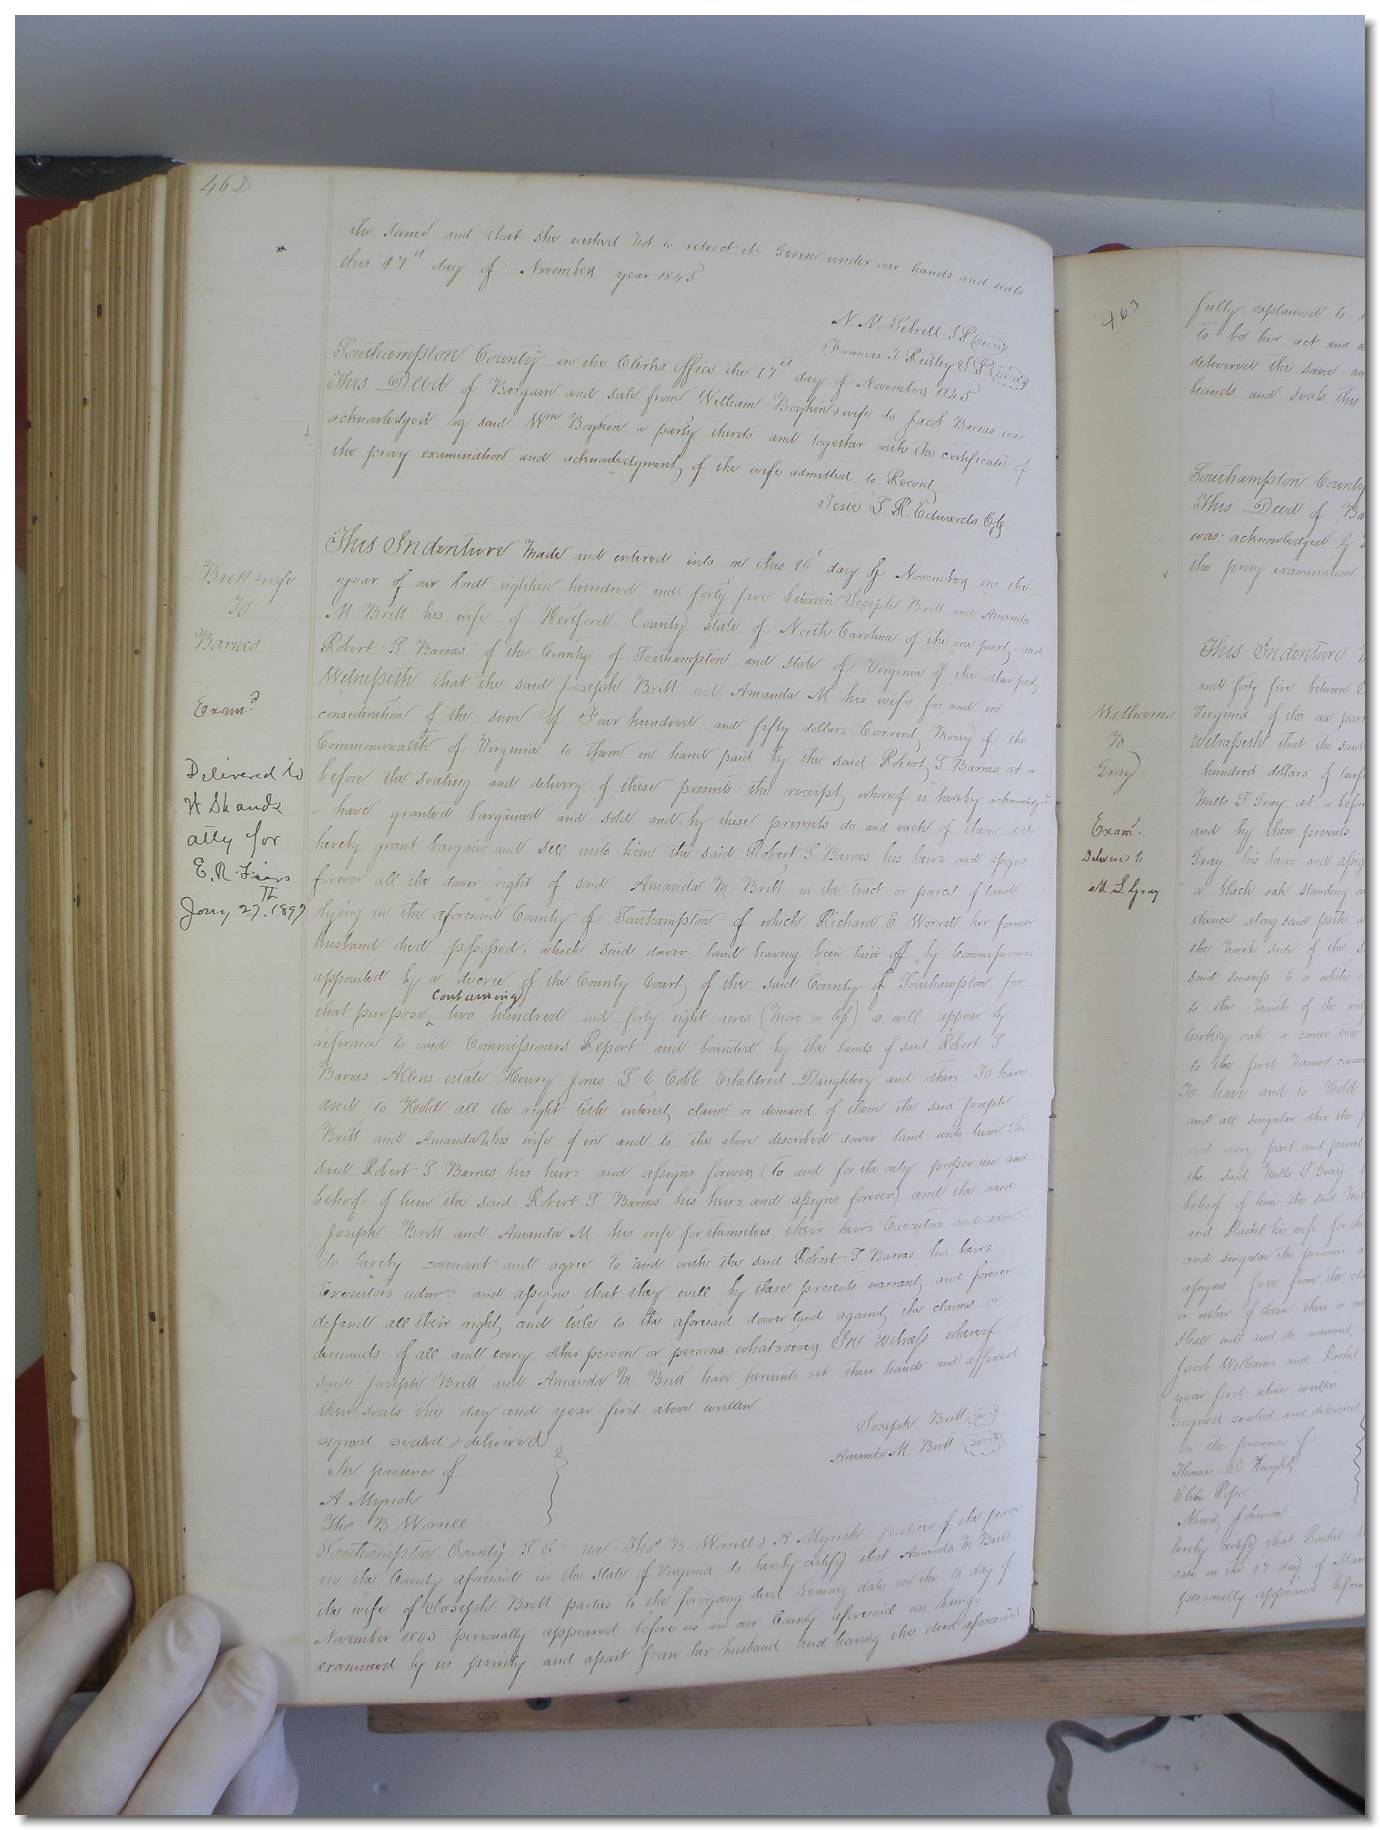 462
the same and that she wished not to retract it Given under our hands and seals
this 17th day of November year 1845
N. M. Sebrell J P (Seal)
Francis T Ridley J P (Seal)
Southampton County in the Clerks Office the 17th day of November 1845
This Deed of Bargain and sale from William Boykin & wife to Jacob Barnes was
acknowledged by said Wm Boykin a party thereto and together with the certificate of
the privy examination and acknowledgment of the wife admitted to Record
Teste L R Edwards Clk
Britt & wife
To
Barnes
Examd
Delivered to
atty for
Jany 27th 1897
This Indenture Made and entered into on this 16th day of November in the
year of our lord eighteen hundred and forty five between Joseph Britt and Amanda
M Britt his wife of Hertford County State of North Carolina of the one part and
Robert S Barnes of the County of Southampton and State of Virginia of the other part
Witnesseth that the said Joseph Britt and Amanda M his wife for and in
consideration of the sum of Four hundred and fifty dollars Current Money of the
Commonwealth of Virginia to them in hand paid by the said Robert S Barnes at &
before the sealing and delivery of these presents the receipt whereof is hereby acknowledged
have granted bargained and sold and by these presents do and each of them doth
hereby grant bargain and sell unto him the said Robert S Barnes his heirs and assigns
forever all the dower right of said Amanda M. Britt in the tract or parcel of land
lying in the aforesaid County of Southampton of which Richard E Worrell her former
husband died possessed. which said dower land having been laid off by Commissioners
appointed by a decree of the County Court of the said County of Southampton for
that purpose containing two hundred and forty eight acres (more or less) as will appear by
reference to said Commissioners Report and bounded by the lands of said Robert S
Barnes Allens estate Henry Jones S C Cobb Etheldred Daughtery and others To have
and to Hold all the right title interest claim or demand of them the said Joseph
Britt and Amanda M his wife of in and to the above described dower land unto him the
said Robert S Barnes his heirs and assigns forever (To and for the only proper use and
behoof of him the said Robert S Barnes his heirs and assigns forever) and the said
Joseph Britt and Amanda M. his wife for themselves their heirs Executors and admrs
do hereby covenant and agree to and with the said Robert S Barnes his heirs
Executors admrs and assigns that they will by these presents warrant and forever
defend all their right and title to the aforesaid dower land against the claims or
demands of all and every other person or persons whatsoever In Witness whereof the
said Joseph Britt and Amanda M Britt have hereunto set their hands and affixed
their seals the day and year first above written
signed sealed & delivered
In presence of
A Myrick
Thos B Worrell
Joseph Britt (Seal)
Amanda M Britt (Seal)
Southampton County T C we Thos B Worrell & A Myrick justices of the peace
in the County aforesaid in the State of Virginia do hereby certify that Amanda M Britt
the wife of Joseph Britt parties to the foregoing deed bearing date on the 16 day of
November 1845 personally appeared before us in our County aforesaid an being
examined by us privily and apart from her husband and having the deed aforesaid
463
fully explained to
to be her act and
delivered the same
hands and seals this
Southampton County
This Deed of
was acknowledged by
the privy examination
Williams
To
Gray
Examd
Deliverd to
M L Gray
This Indenture
and forty five between
Virginia of the one part
Witnesseth that the said
hundred dollars of
Mills L Gray at & before
and by these presents
Gray his heirs and assigns
a black oak standing
thence along said path
the North side of the
said swamp to a white
to the mouth of the
turkey oak a corner tree
to the first named corner
To have and to Hold
and all singular the
and every part and parcel
the said Mills L Gray
behoof of him the said
and Rachel his wife for
and singular the premises
assigns free from the
or either of them their or
Shall will and do warrant
Jacob Williams and Rachel
year first above written
signed sealed and delivered
in the presence of
Thomas D Knight
Elias Pope
hereby certify that Rachel
sale on the 17 day of
personally appeared before